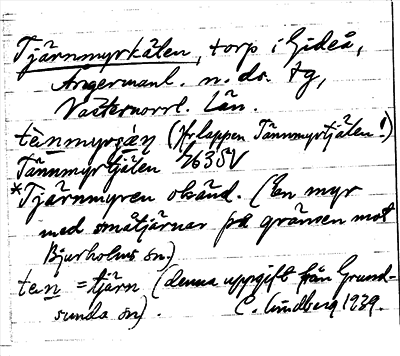 Tjärnmyrkälen, torp i Gideå,
Ångermanl. n. ds. tg,
Västernorrl. län.
tènmyrsän (Jfr lappen Tännmyrtjälen!)
Tännmyrtjälen 7635V
*Tjärnmyren okänd. (En myr
med småtjärnar på gränsen mot
Bjurholms sn.)
ten = tjärn (denna uppgift från Grund-
sunda sn). C. Lindberg 1939.